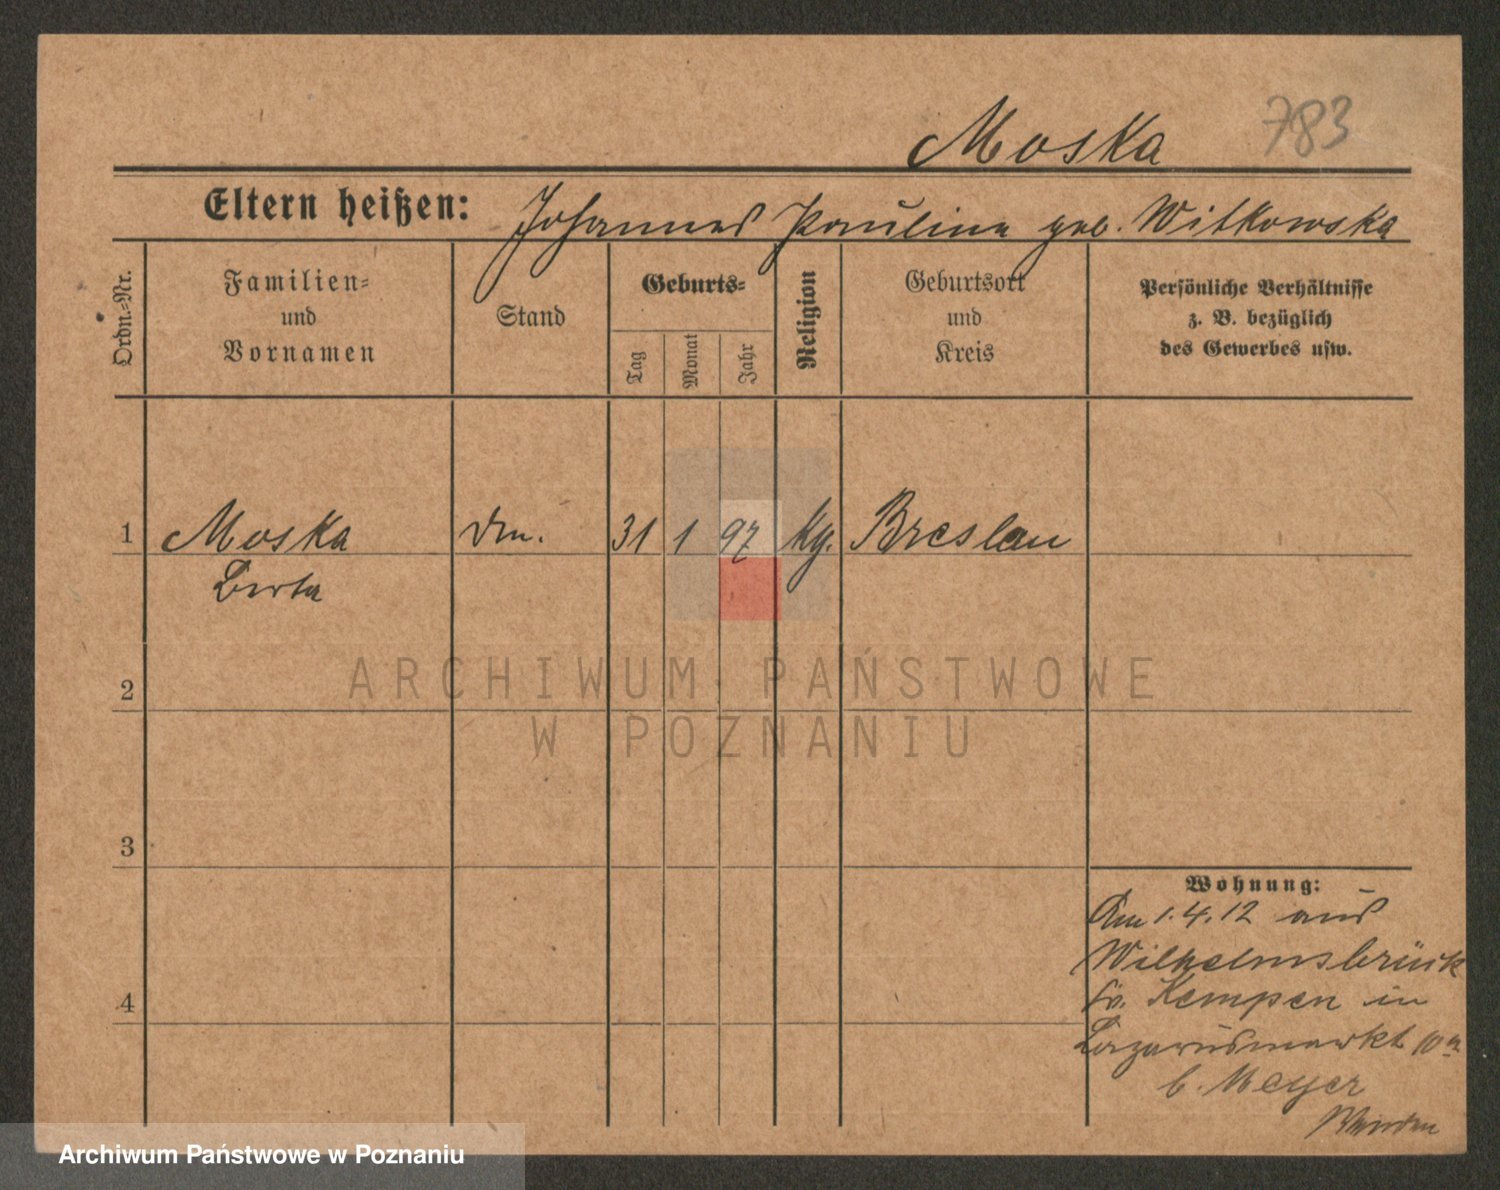 Moska 783
Eltern heißen: Johannes Pauline geb. Witkowska
Ordn.-Nr.
Familien-
und
Vornamen
Stand
Geburts-
Tag
Monat
Jahr
Religion
Geburtsort
und
Kreis
Persönliche Verhältnisse
z. B. bezüglich
des Gewerbes usw.
1 Moska 31 1 97 Breslau
Berta
2
ARCHIWUM PAŃSTWOWE
W POZNANIU
3
Wohnung:
Am 1.4.12 aus
Wilhelmsbrück
Kr. Kempen in
Lazarusmarkt 10
b. Meyer
4
Archiwum Państwowe w Poznaniu